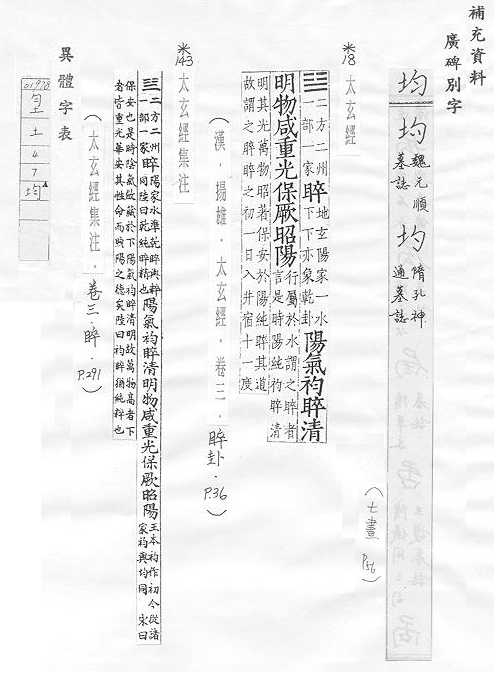 補充資料
廣碑別字
均
均 魏元順墓誌
均 隋孔神通墓誌
(七畫 P.56)
※18
太玄經
一方二州
一部一家
睟
地玄陽家一水
下下亦象乾卦
陽氣袀睟清
明物咸重光保厥昭陽
行屬於水謂之睟者
言是時陽純袀睟清
明其光萬物昭著保安於陽純睟其道
故謂之睟睟之初一日入井宿十一度
(漢.揚雄.太玄經.卷三.睟卦.P.36)
※143
太玄經集注
二方二州
一部一家
睟
陽家水準乾睟與粹
同陸曰乾純睟精也
陽氣袀睟清明物咸重光保厥昭陽
王本袀作初今從諸
家袀與均同 宋曰
保安也是時陰氣斂藏於下陽氣袀睟清明故萬物高者下
者皆重光華安其性命而昭陽之德矣陸曰袀睟猶純粹也
(太玄經集注.卷三.睟.P.291)
異體字表
01978
土
4
7
均